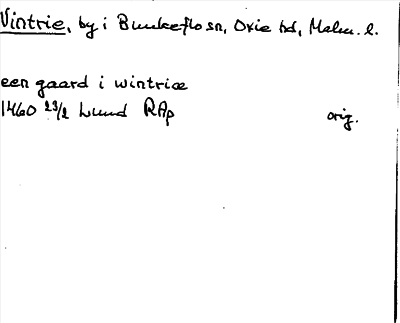 Vintrie, by i Bunkeflo sn, Oxie hd, Malm. l.
een gaard i wintriæ
1460 23/2 Lund RAp orig.